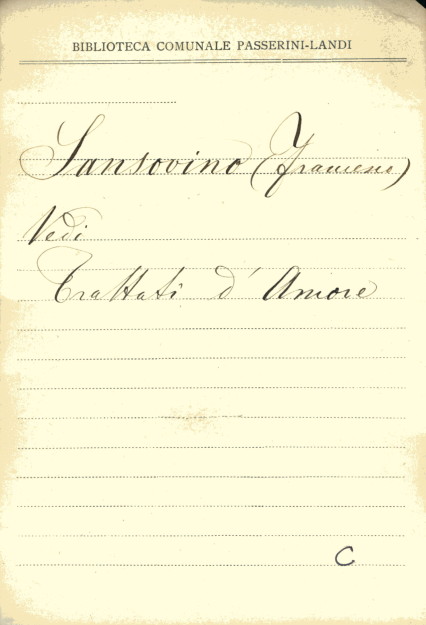 BIBLIOTECA COMUNALE PASSERINI-LANDI
Sansovino (Francesco)
Vedi
Trattati d'Amore
C